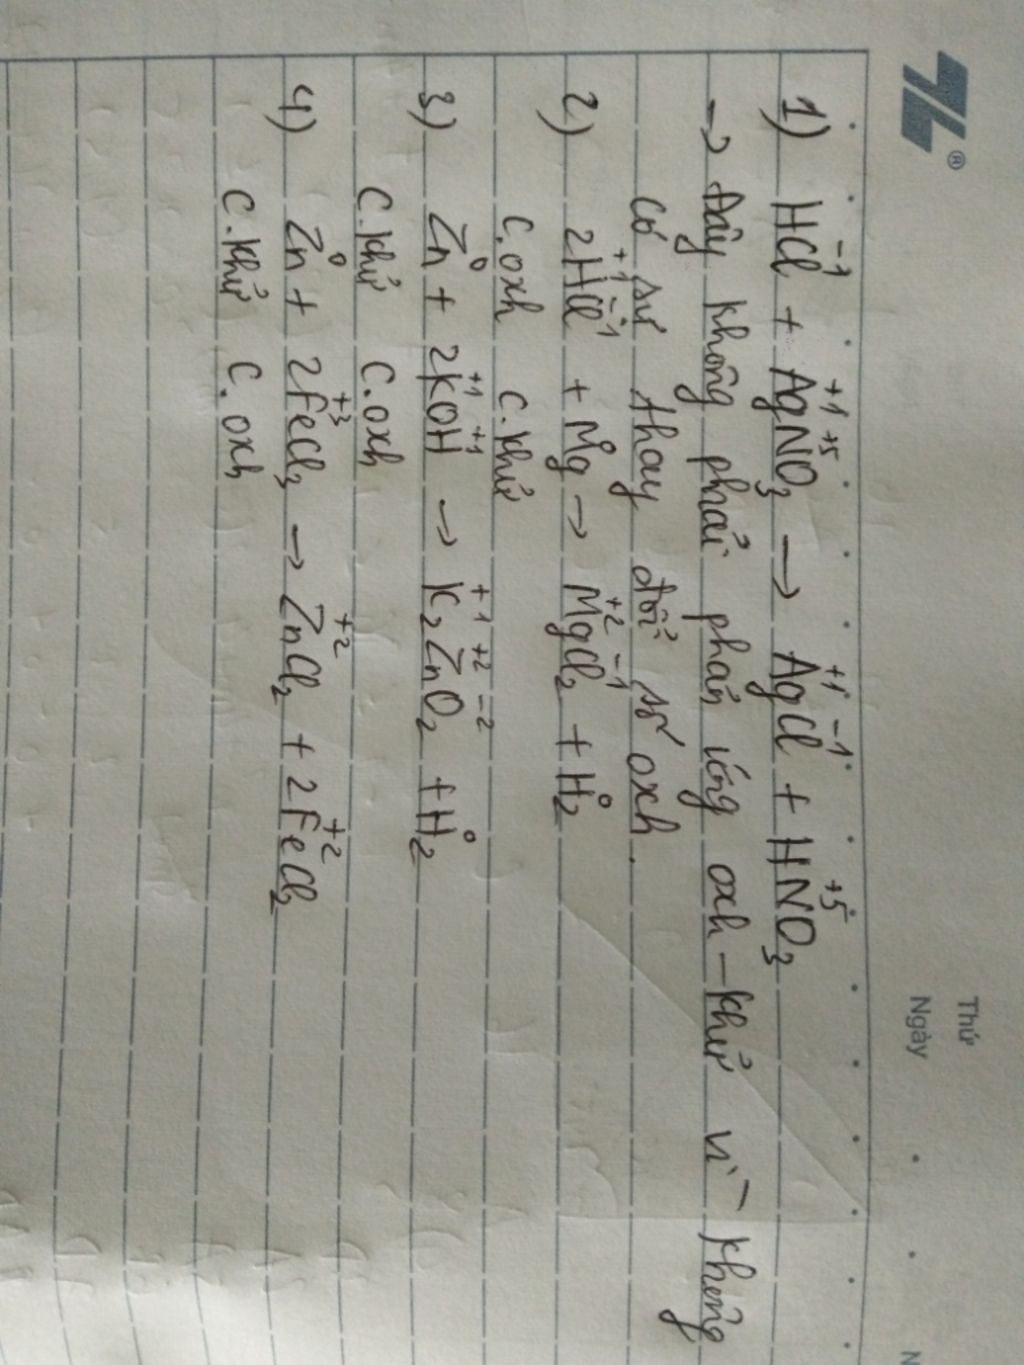 Thứ
Ngày
N
®
1) HCl⁻¹ + Ag⁺¹N⁺⁵O₃ → Ag⁺¹Cl⁻¹ + HN⁺⁵O₃
→ Đây không phải phản ứng oxh - khử vì không
có sự thay đổi số oxh.
2) 2H⁺¹Cl⁻¹ + Mg⁰ → Mg⁺²Cl₂⁻¹ + H₂⁰
C.oxh C.khử
3) Zn⁰ + 2K⁺¹OH⁺¹ → K₂⁺¹Zn⁺²O₂⁻² + H₂⁰
C.khử C.oxh
4) Zn⁰ + 2Fe⁺³Cl₃ → Zn⁺²Cl₂ + 2Fe⁺²Cl₂
C.khử C.oxh